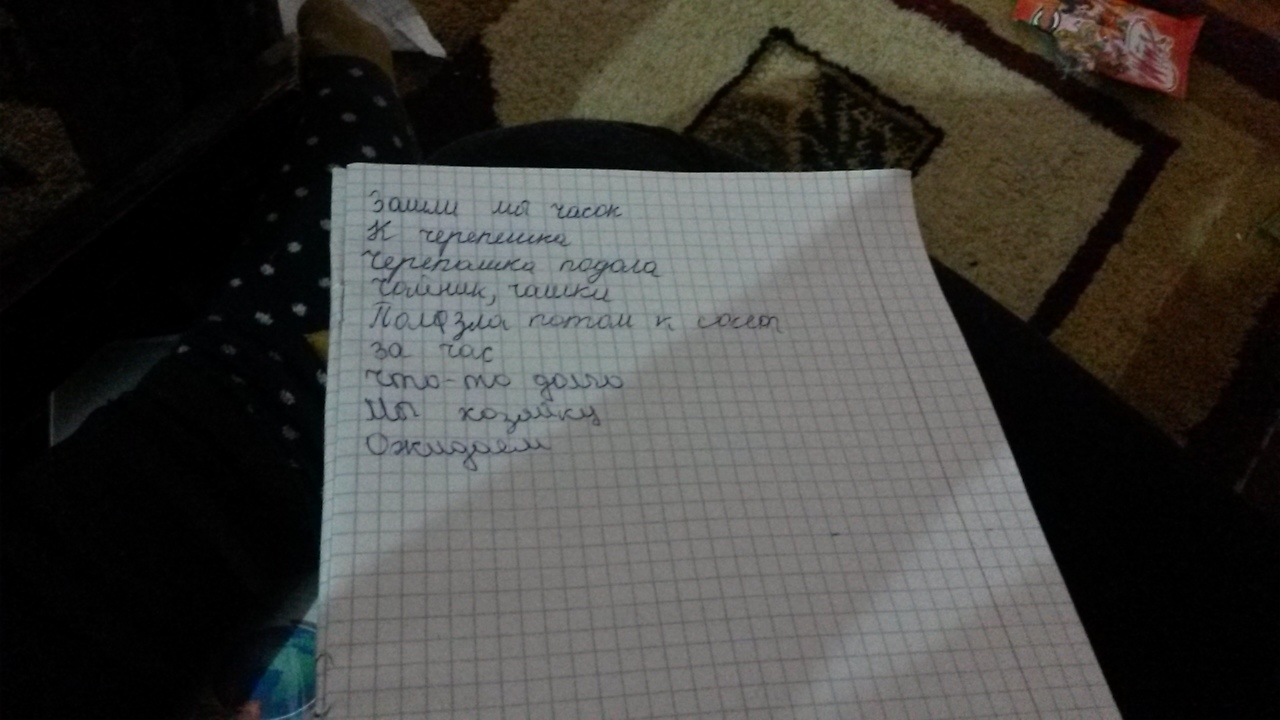 Зашли мы часок
К черепешка
Черепашка подала
Чайник, чашки
Полозла потом к
за час
Что-то долго
Мы хозайку
Ожидаем